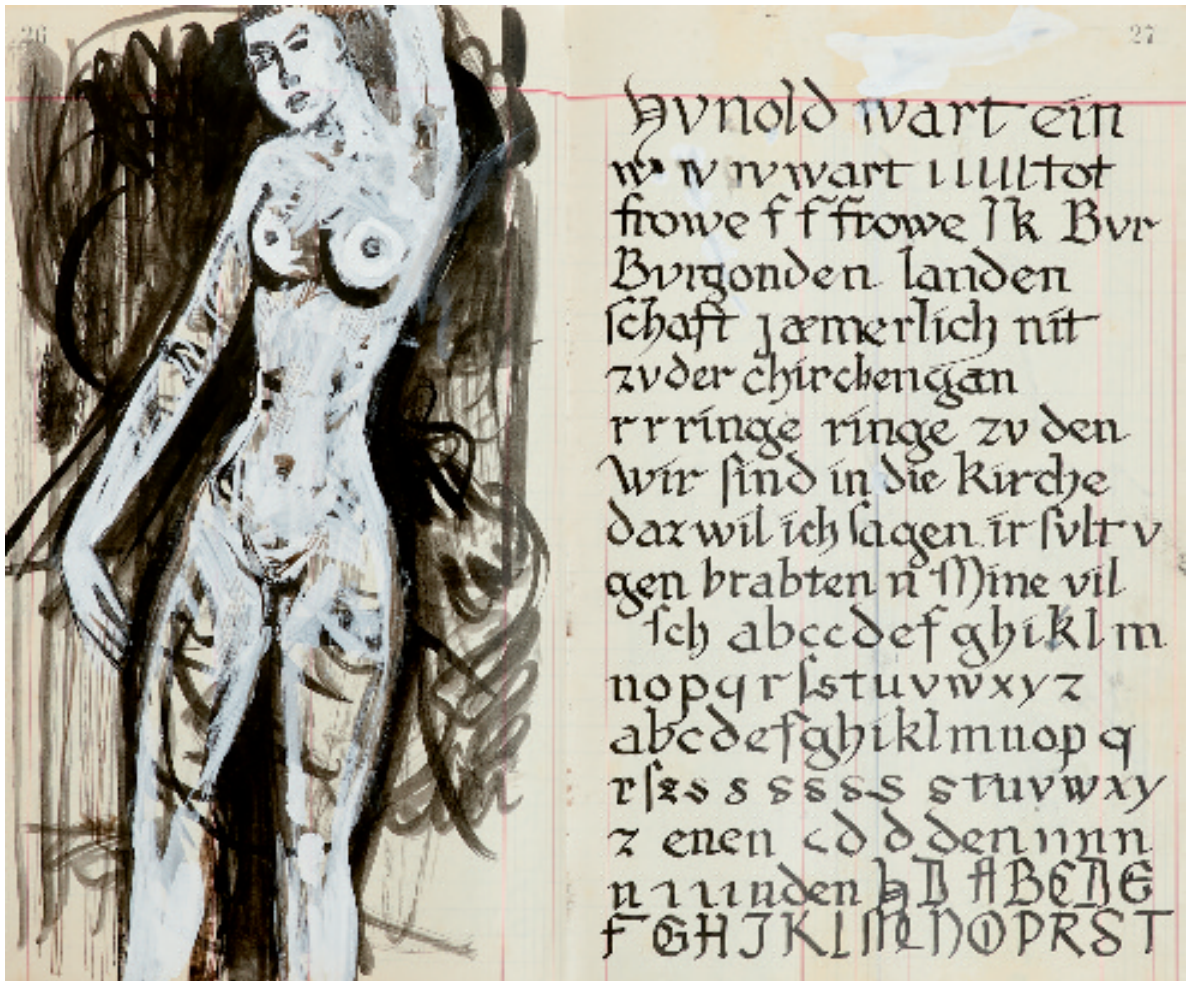 26
27
hvnold wart ein
w w w wwart ı l l l l tot
frowe f f frowe l k Bvr
Bvrgonden landen
ſchaft jæmerlich nit
zvder chirchengan
r r ringe ringe zv den
Wir ſind in die Kirche
daz wil ich ſagen ir ſvlt v
gen brabten n Mine vil
Ich abccdefghiklm
nopqrſstuvwxyz
abcdefghiklmnopq
rſzs s s s s s stuvwxy
z enen cd d d den nn n
n ı ı ı nden h D A B C D E
F G H J K L M N O P R S T